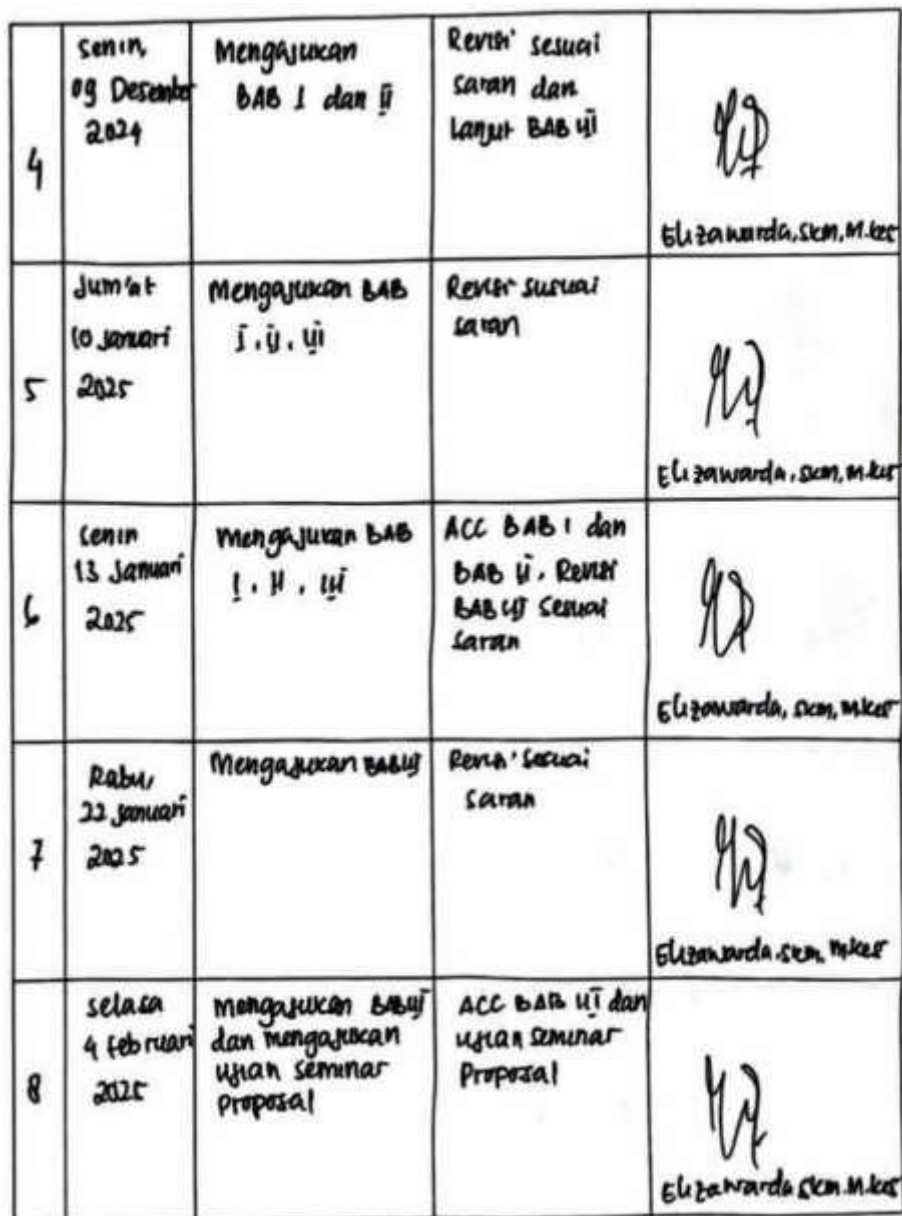 4
Senin,
09 Desember
2024
Mengajukan
BAB I dan II
Revisi sesuai
saran dan
Lanjut BAB III
Elizawarda, SKM, M.Kes
5
Jum'at
10 Januari
2025
Mengajukan BAB
I, II, III
Revisi susuai
saran
Elizawarda, SKM, M.Kes
6
Senin
13 Januari
2025
Mengajukan BAB
I, II, III
ACC BAB I dan
BAB II. Revisi
BAB III Sesuai
saran
Elizawarda, SKM, M.Kes
7
Rabu,
22 Januari
2025
Mengajukan BAB III
Revisi Sesuai
saran
Elizawarda, SKM, M.Kes
8
Selasa
4 februari
2025
Mengajukan BAB III
dan mengajukan
ujian seminar
proposal
ACC BAB III dan
ujian seminar
Proposal
Elizawarda SKM. M.Kes